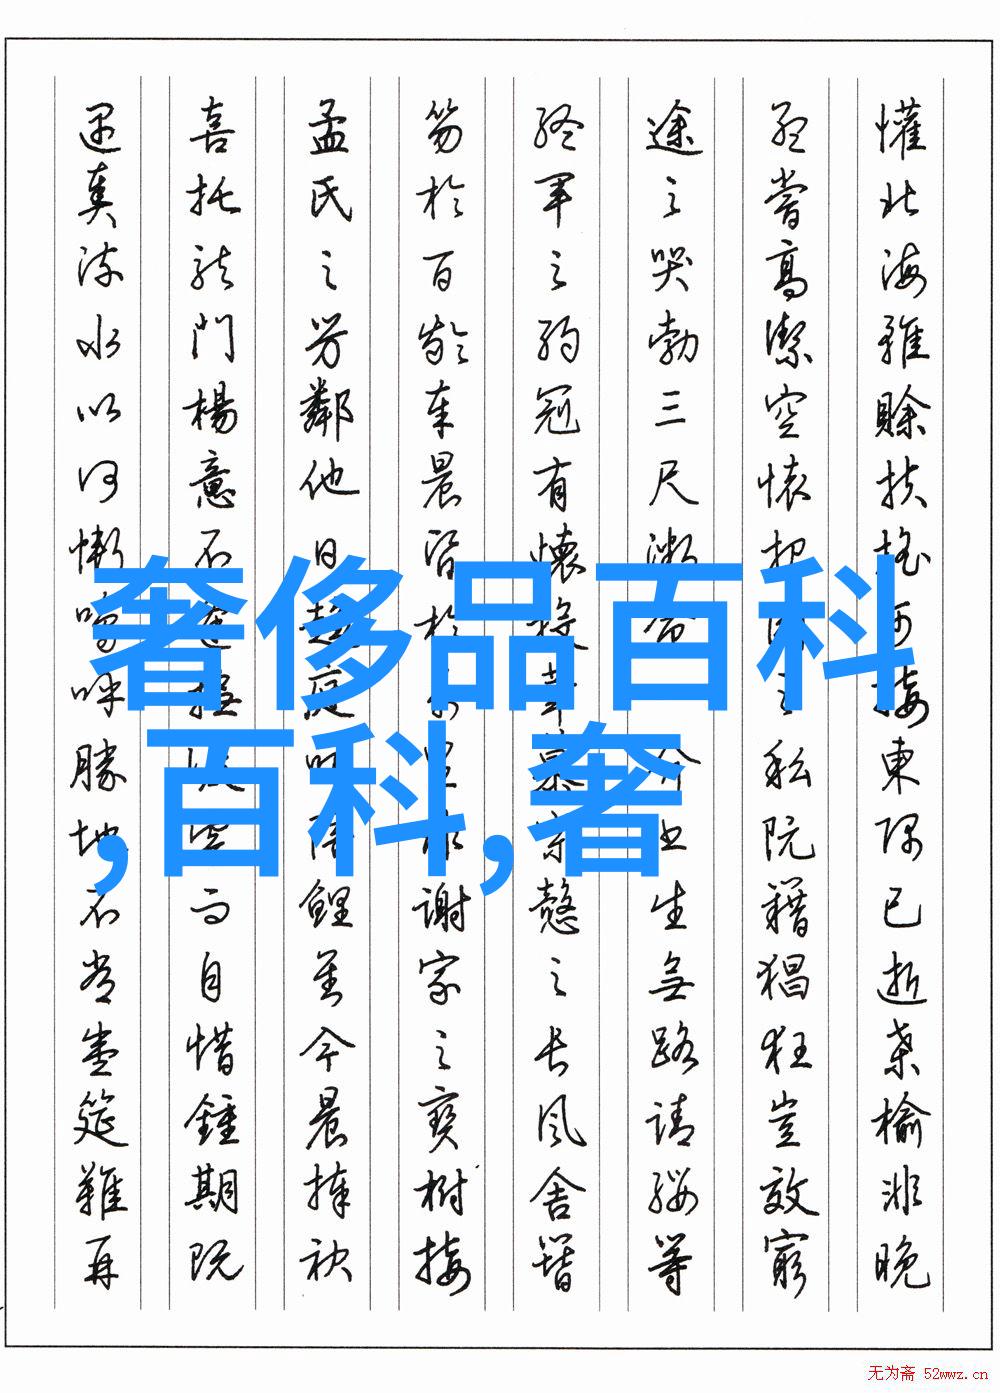 懽北海雖賒扶摇可接東隅已逝桑榆非晚
孟嘗高潔空懷報國之私阮籍猖狂豈效窮
途之哭勃三尺微命一介書生無路請纓等
終軍之弱冠有懷投筆慕宗慤之長風舍簪
笏於百齡奉晨昏於萬里非謝家之寶樹接
孟氏之芳鄰他日趨庭叨陪鯉對今晨捧袂
喜托龍門楊意不逢撫凌雲而自惜鍾期既
遇奏流水以何慚嗚呼勝地不常盛筵難再
奢侈品百科
,百科,奢
无为斋 52wwz.cn